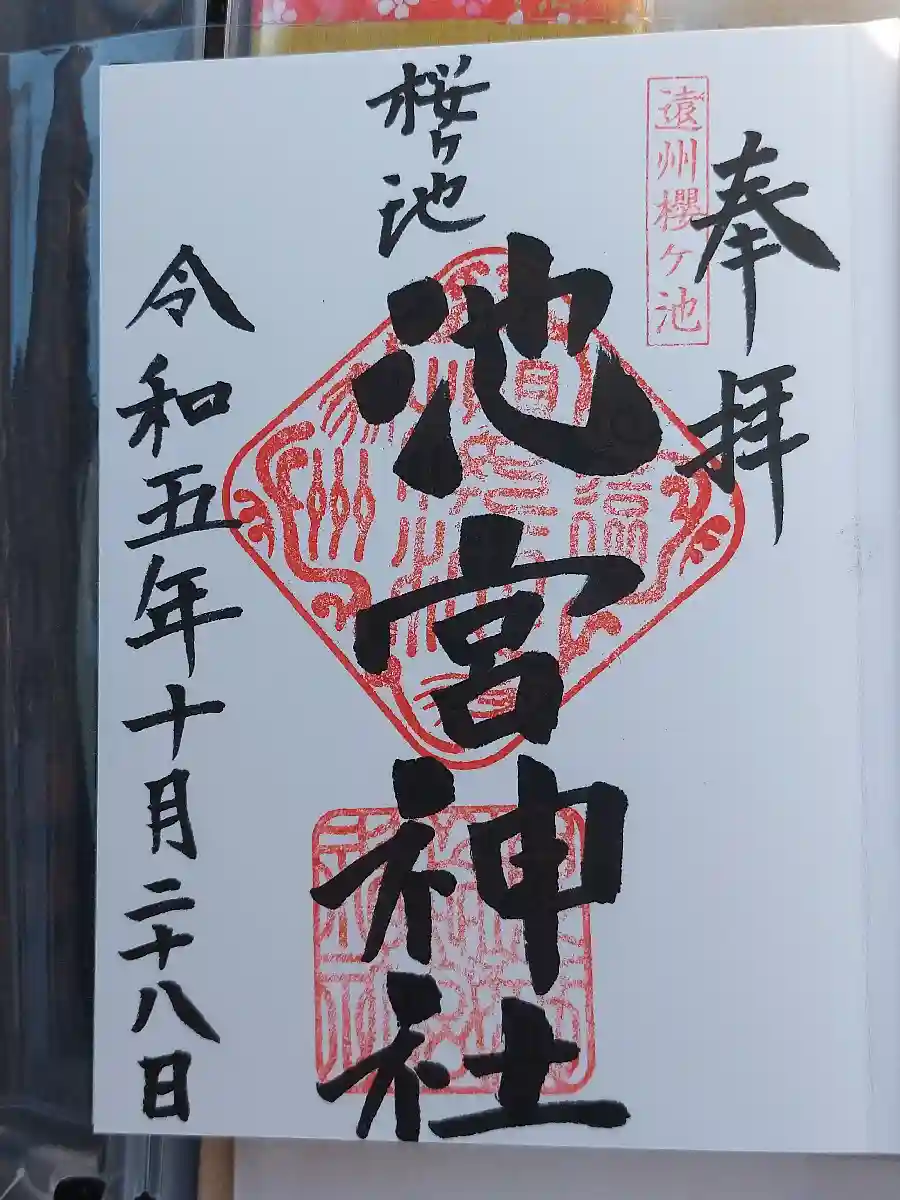 奉拝
遠州櫻ヶ池
桜ヶ池
池宮神社
令和五年十月二十八日